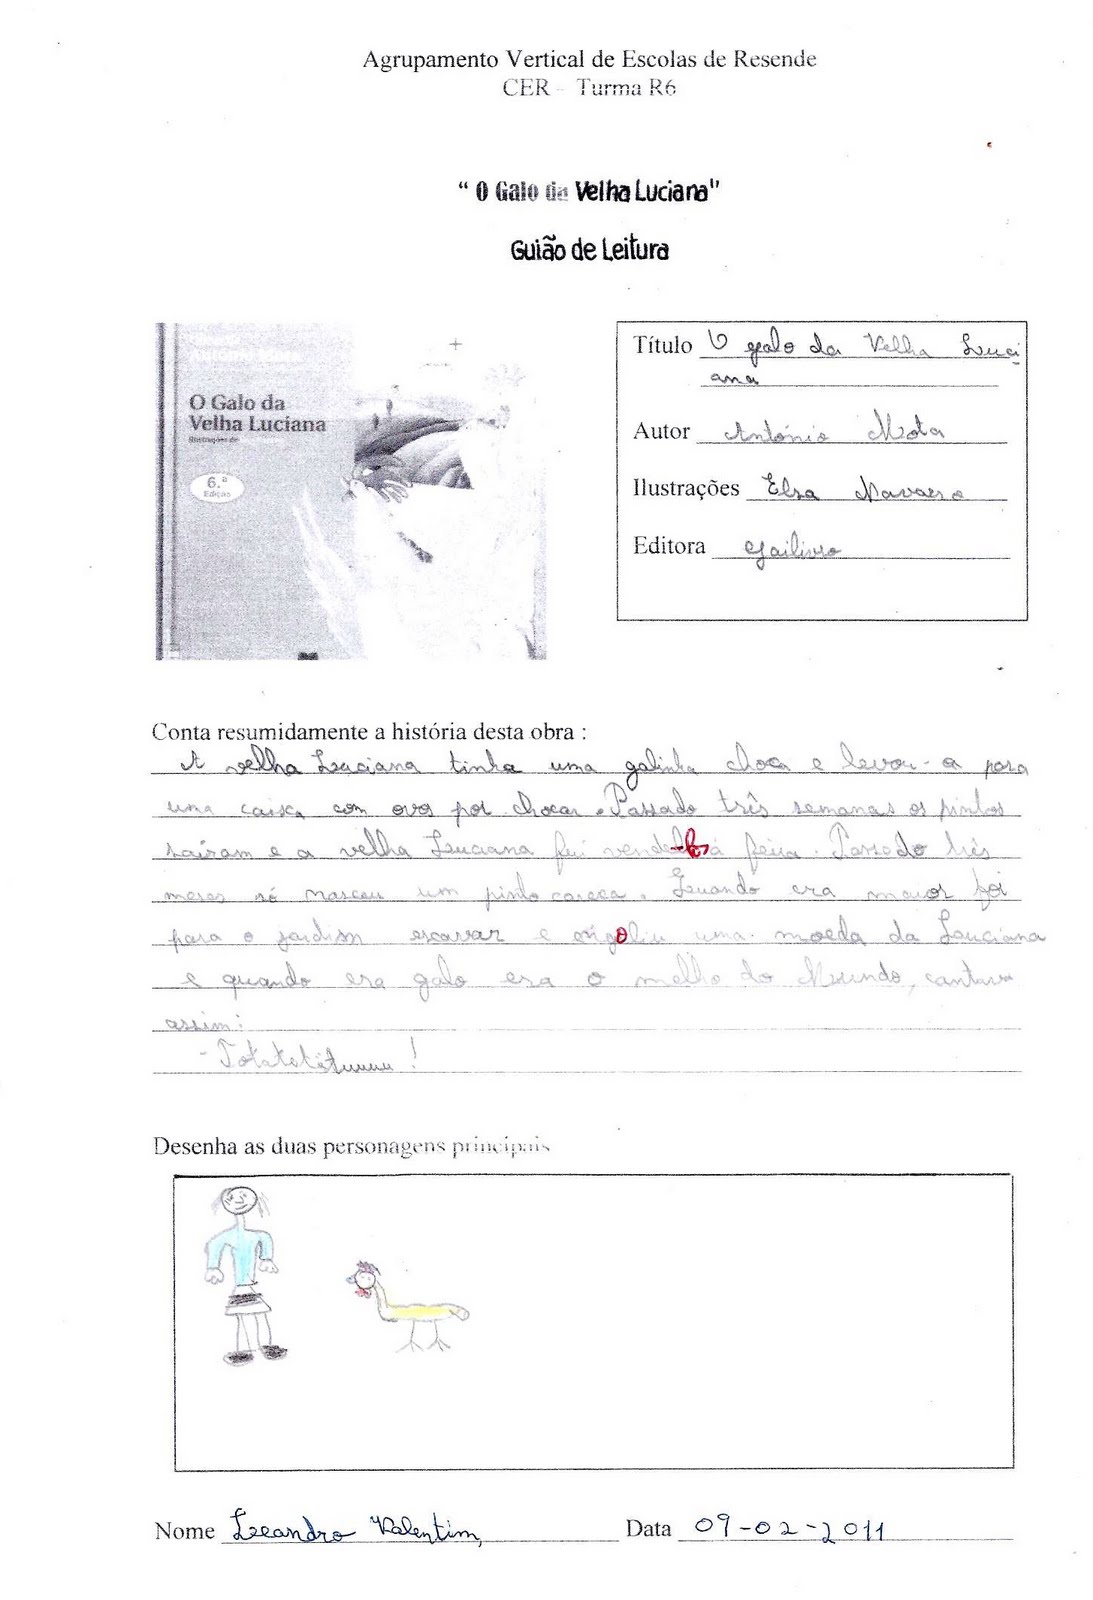 Agrupamento Vertical de Escolas de Resende
CER - Turma R6
“ O Galo da Velha Luciana"
Guião de Leitura
António Mota
O Galo da
Velha Luciana
Ilustrações de
6.ª
Edição
Título O galo da Velha Luci-
ana
Autor António Mota
Ilustrações Elsa Navarro
Editora Gailivro
Conta resumidamente a história desta obra :
A velha Luciana tinha uma galinha choca e levou-a para
uma caixa com ovos por chocar. Passado três semanas os pintos
saíram e a velha Luciana foi vende-los á feira. Passado três
meses só nasceu um pinto careca. Quando era maior foi
para o jardim escavar e engoliu uma moeda da Luciana
e quando era galo era o melho do Mundo, cantava
assim: